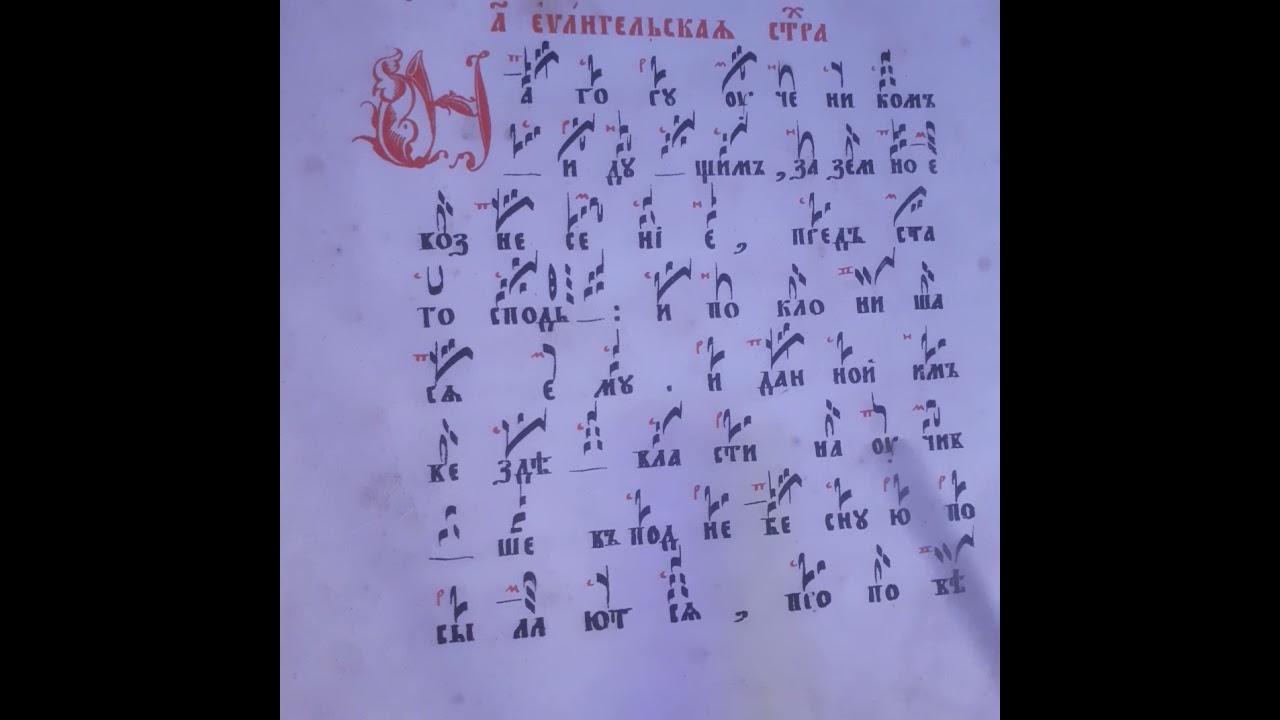 а҃ еѵⷢ҇лительскаѧ стⷯра
На го гу оу че ни комъ
и ду щимъ, за зем но е
воз не се нї е, предъ ста
го сподь : и по кло ни ша
сѧ е му . и дан ной имъ
ве здѣ вла сти на оу чив
ше въ под не бе сну ю по
сы ла ют сѧ, про по вѣ